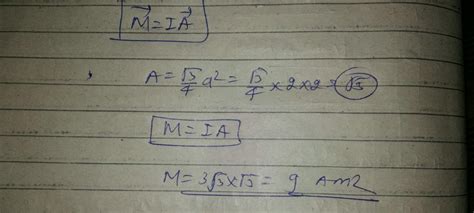 M⃗ = IA⃗
, A = √3/4 a² = √3/4 × 2 × 2 = √3
M = IA
M = 3√3 × √3 = 9 Am2